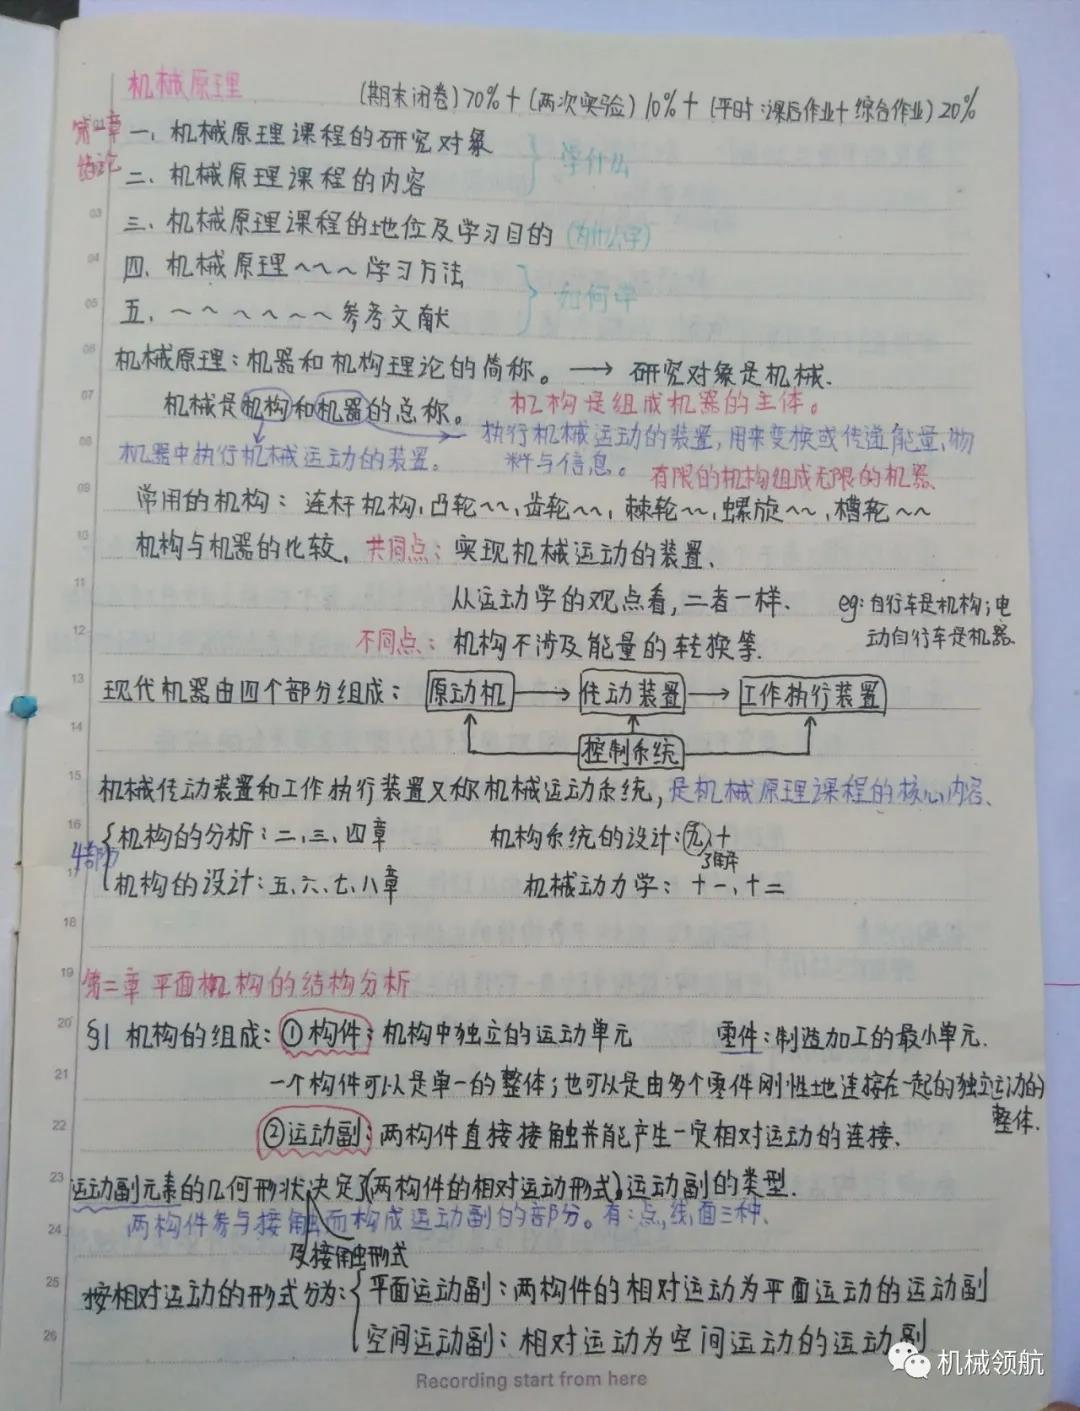 机械原理
(期末闭卷)70%+(两次实验)10%+(平时:课后作业+综合作业)20%
第一章
绪论
一、机械原理课程的研究对象
学什么
二、机械原理课程的内容
三、机械原理课程的地位及学习目的 (为什么学)
四、机械原理~~~学习方法
如何学
五、~~~~~~参考文献
机械原理:机器和机构理论的简称。→研究对象是机械.
机械是机构和机器的总称。 机构是组成机器的主体。
执行机械运动的装置,用来变换或传递能量、物
机器中执行机械运动的装置。 料与信息。 有限的机构组成无限的机器.
常用的机构:连杆机构,凸轮~~,齿轮~~,棘轮~~,螺旋~~,槽轮~~
机构与机器的比较, 共同点:实现机械运动的装置、
从运动学的观点看,二者一样. eg:自行车是机构;电
动自行车是机器.
不同点:机构不涉及能量的转换等.
现代机器由四个部分组成: 原动机→传动装置→工作执行装置
控制系统
机械传动装置和工作执行装置又称机械运动系统,是机械原理课程的核心内容、
4部分
机构的分析:二、三、四章 机构系统的设计:九、十
了解
机构的设计:五、六、七、八章 机械动力学:十一、十二
第二章 平面机构的结构分析
§1 机构的组成:①构件:机构中独立的运动单元 零件:制造加工的最小单元.
一个构件可以是单一的整体;也可以是由多个零件刚性地连接在一起的独立运动的
整体.
②运动副:两构件直接接触并能产生一定相对运动的连接、
运动副元素的几何形状决定了(两构件的相对运动形式)运动副的类型.
两构件参与接触而构成运动副的部分。有:点,线,面三种、
及接触形式
按相对运动的形式分为: 平面运动副:两构件的相对运动为平面运动的运动副
空间运动副:相对运动为空间运动的运动副
03
04
05
06
07
08
09
10
11
12
13
14
15
16
17
18
19
20
21
22
23
24
25
26
Recording start from here
机械领航